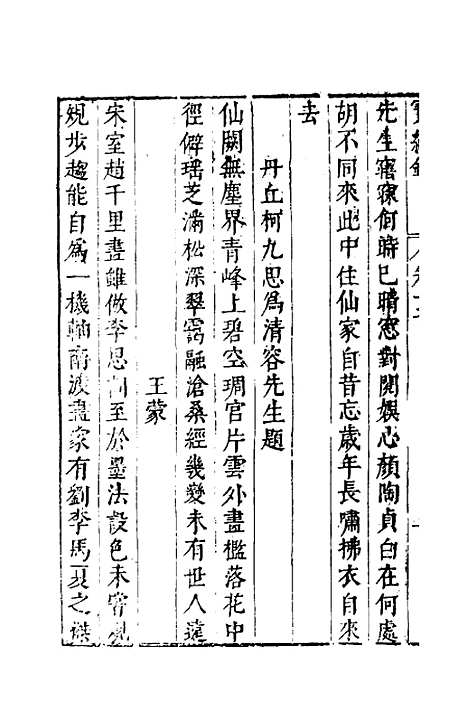 寶繪錄
先生寤寐何時已晴窓對閱娱心顏陶貞白在何處
胡不同來此中住仙家自昔忘歲年長嘯拂衣自來
去
丹丘柯九思爲清容先生題
仙闕無塵界青峰上碧空琱官片雲外畫檻落花中
徑僻瑶芝滿松深翠靄融滄桑經幾變未有世人逢
王蒙
宋室趙千里畫雖倣李思訓至於墨法設色未嘗規
規步趨能自爲一機軸南渡畫家有劉李馬夏之謀